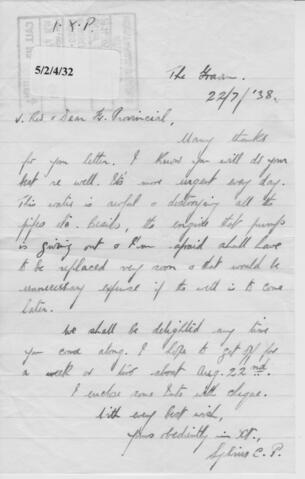 I.X.P.
5/2/4/32
The Graan.
22/7/'38.
V. Rev. & Dear Fr. Provincial,
Many thanks
for your letter. I know you will do your
best re well. It's more urgent every day.
This water is awful & destroying all the
pipes etc. Besides, the engine that pumps
is giving out & I'm afraid shall have
to be replaced very soon & that would be
unnecessary expense if the well is to come
later.
We shall be delighted any time
you come along. I hope to get off for
a week or two about Aug. 22nd.
I enclose some with cheque.
With every best wish,
yours obediently in Xt.,
C.P.